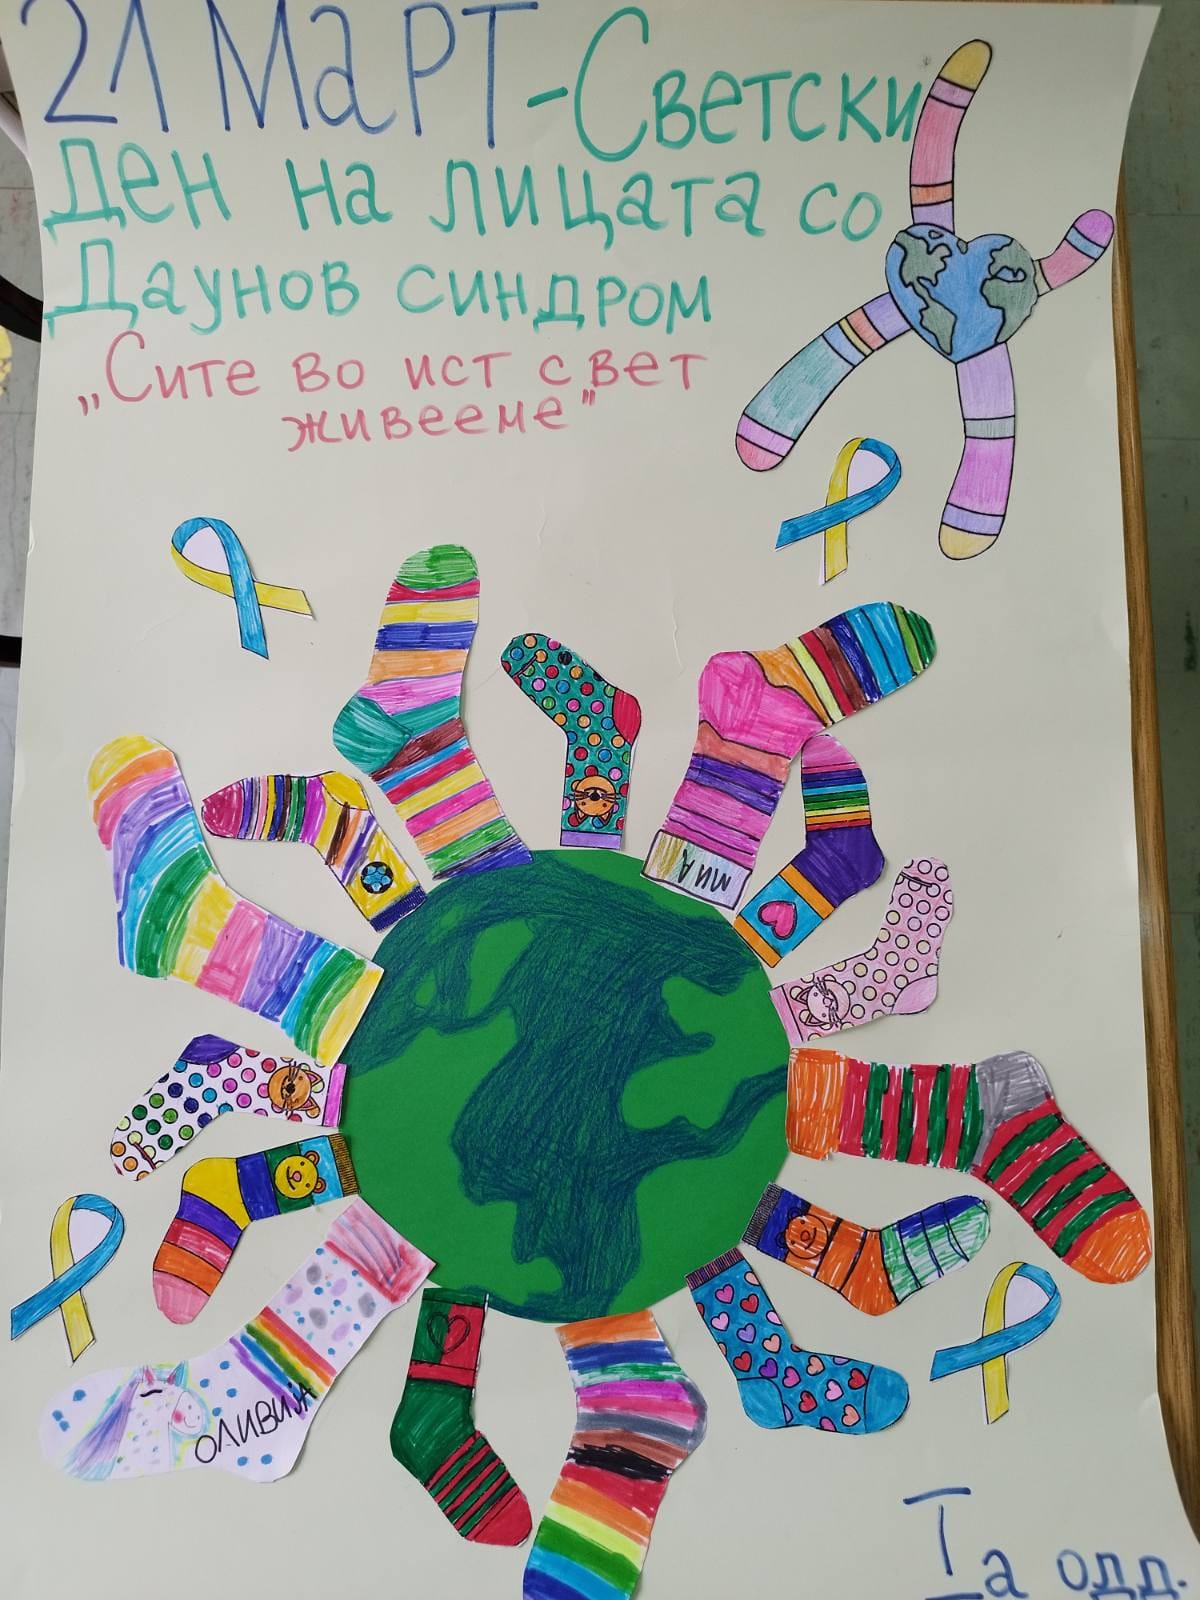 21 МаРТ - Светски
Ден на лицата со
Даунов синдром
„Сите во ист свет
живееме"
МИА
ОЛИВИЈА
Iа одд.